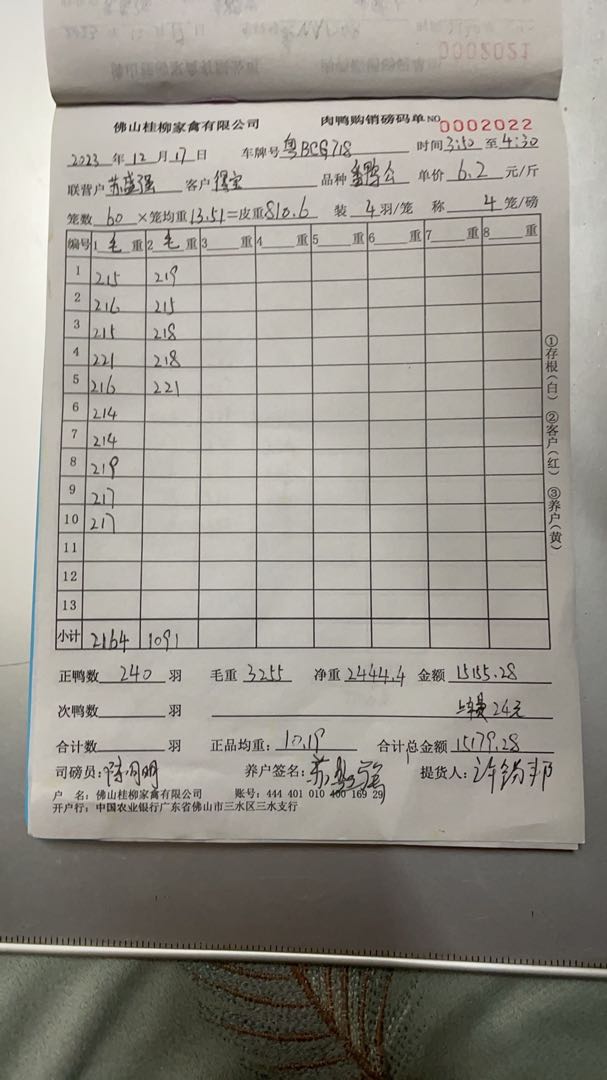 0002021
佛山桂柳家禽有限公司 肉鸭购销磅码单 NO 0002022
2023 年 12 月 17 日 车牌号 粤BCG718 时间 3:50 至 4:30
联营户 苏盛强 客户 品种 番鸭公 单价 6.2 元/斤
笼数 60 ×笼均重 13.51 =皮重 810.6 装 4 羽/笼 称 4 笼/磅
编号 1 毛 重 2 毛 重 3 重 4 重 5 重 6 重 7 重 8 重
1 215 219
2 216 215
3 215 218
4 221 218
5 216 221
6 214
7 214
8 219
9 217
10 217
11
12
13
小计 2164 1091
①存根(白) ②客户(红) ③养户(黄)
正鸭数 240 羽 毛重 3255 净重 2444.4 金额 15155.28
次鸭数 羽 24元
合计数 羽 正品均重: 10.19 合计总金额 15179.28
司磅员: 养户签名: 苏盛强 提货人:
户 名: 佛山桂柳家禽有限公司 账号: 444 401 010 400 169 29
开户行: 中国农业银行广东省佛山市三水区三水支行